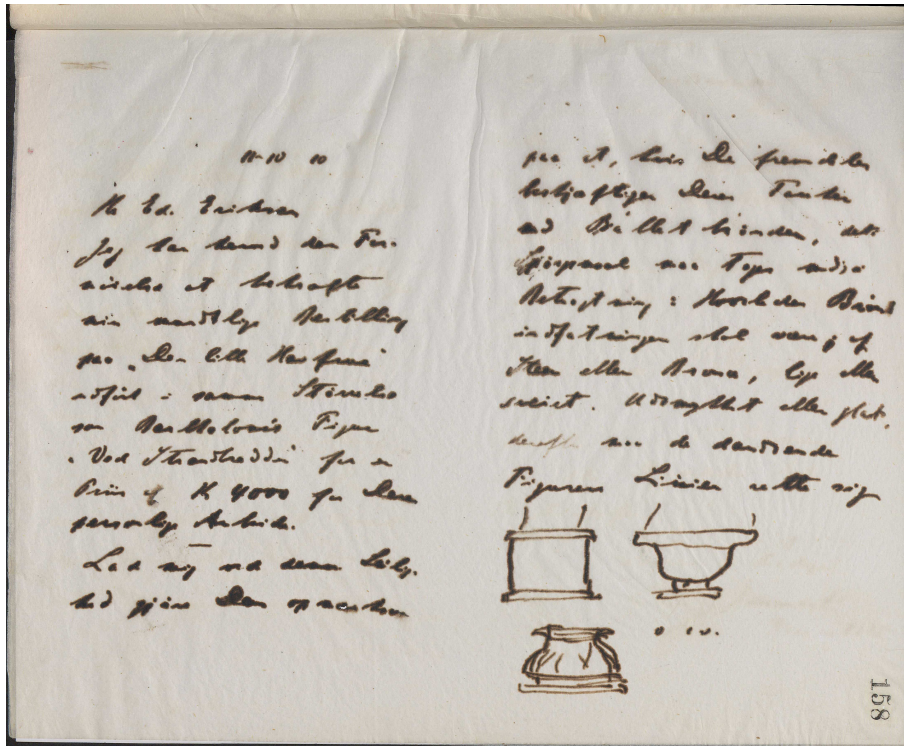 11-10 10
Hr Ed. Eriksen
Jeg har hermed den For-
nøielse at bekræfte
min mundtlige Bestilling
paa „Den lille Havfrue"
udført i samme Størrelse
som Bartholomés Figur
„Ved Strandbredden" for en
Priis af K 4000 for Deres
personlige Arbeide.
Lad mig ved denne Leilig-
hed gjøre Dem opmærksom
paa at, hvis De fremdeles
beskjæftiger Deres Tanker
med Ballet brønden, dette
Spørgsmaal maa tages under
Betragtning: Hvorledes Brønd
indfatningen skal være; af
Sten eller Bronce, lige eller
sveiet. Udsmykket eller glat,
derefter maa de dandsende
Figurers Linier rette sig
o s v.
158